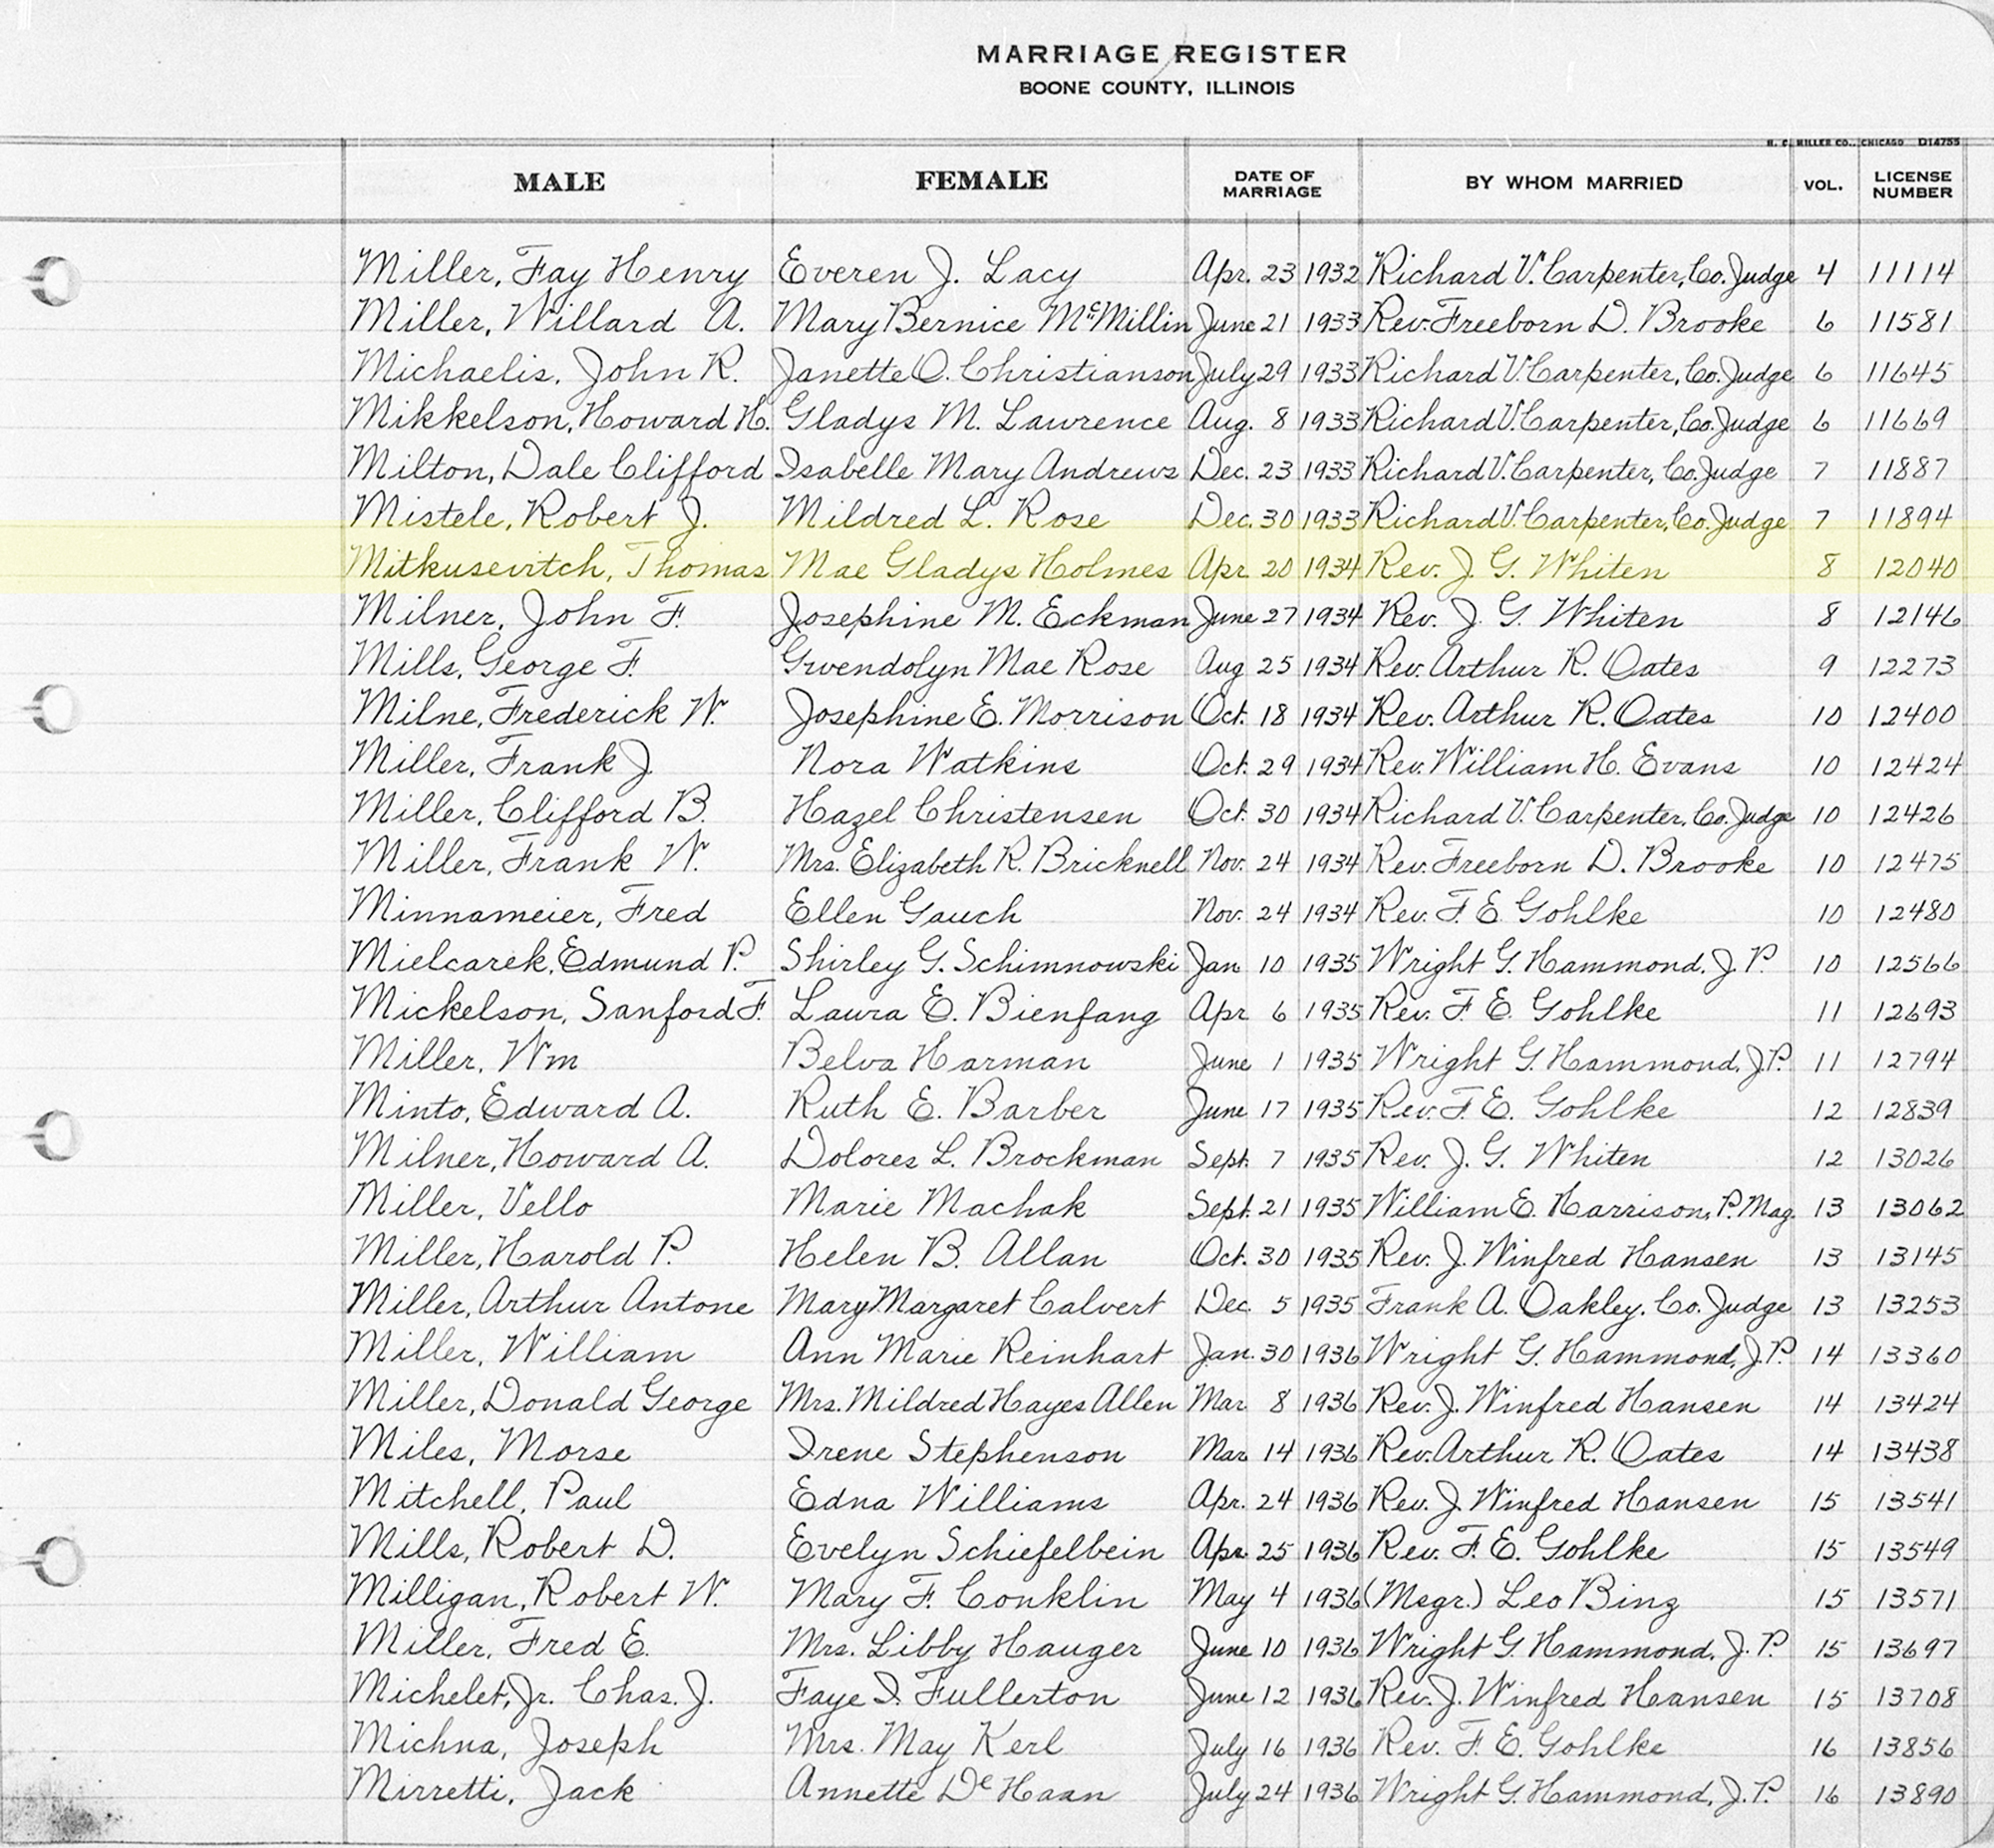 MARRIAGE REGISTER
BOONE COUNTY, ILLINOIS
H. C. MILLER CO., CHICAGO D14755
MALE FEMALE DATE OF MARRIAGE BY WHOM MARRIED VOL. LICENSE NUMBER
Miller, Fay Henry Everen J. Lacy Apr. 23 1932 Richard V. Carpenter, Co. Judge 4 11114
Miller, Willard A. Mary Bernice McMillin June 21 1933 Rev. Freeborn D. Brooke 6 11581
Michaelis, John R. Janette O. Christianson July 29 1933 Richard V. Carpenter, Co. Judge 6 11645
Mikkelson, Howard H. Gladys M. Lawrence Aug. 8 1933 Richard V. Carpenter, Co. Judge 6 11669
Milton, Dale Clifford Isabelle Mary Andrews Dec. 23 1933 Richard V. Carpenter, Co. Judge 7 11887
Mistele, Robert J. Mildred L. Rose Dec. 30 1933 Richard V. Carpenter, Co. Judge 7 11894
Mitkusevitch, Thomas Mae Gladys Holmes Apr 20 1934 Rev. J. G. Whiten 8 12040
Milner, John F. Josephine M. Eckman June 27 1934 Rev. J. G. Whiten 8 12146
Mills, George F. Gwendolyn Mae Rose Aug 25 1934 Rev. Arthur R. Oates 9 12273
Milne, Frederick W. Josephine E. Morrison Oct. 18 1934 Rev. Arthur R. Oates 10 12400
Miller, Frank J. Nora Watkins Oct. 29 1934 Rev. William H. Evans 10 12424
Miller, Clifford B. Hazel Christensen Oct. 30 1934 Richard V. Carpenter, Co. Judge 10 12426
Miller, Frank W. Mrs. Elizabeth R. Bricknell Nov. 24 1934 Rev. Freeborn D. Brooke 10 12475
Minnameier, Fred Ellen Gauch Nov. 24 1934 Rev. F. E. Gohlke 10 12480
Mielcarek, Edmund P. Shirley G. Schimnowski Jan 10 1935 Wright G. Hammond, J. P. 10 12566
Mickelson, Sanford F. Laura E. Bienfang Apr 6 1935 Rev. F. E. Gohlke 11 12693
Miller, Wm Belva Harman June 1 1935 Wright G. Hammond, J.P. 11 12794
Minto, Edward A. Ruth E. Barber June 17 1935 Rev. F. E. Gohlke 12 12839
Milner, Howard A. Dolores L. Brockman Sept. 7 1935 Rev. J. G. Whiten 12 13026
Miller, Vello Marie Machak Sept. 21 1935 William E. Harrison, P. Mag. 13 13062
Miller, Harold P. Helen B. Allan Oct. 30 1935 Rev. J. Winfred Hansen 13 13145
Miller, Arthur Antone Mary Margaret Calvert Dec. 5 1935 Frank A. Oakley, Co. Judge 13 13253
Miller, William Ann Marie Reinhart Jan. 30 1936 Wright G. Hammond, J.P. 14 13360
Miller, Donald George Mrs. Mildred Hayes Allen Mar 8 1936 Rev. J. Winfred Hansen 14 13424
Miles, Morse Irene Stephenson Mar 14 1936 Rev. Arthur R. Oates 14 13438
Mitchell, Paul Edna Williams Apr. 24 1936 Rev. J. Winfred Hansen 15 13541
Mills, Robert D. Evelyn Schiefelbein Apr. 25 1936 Rev. F. E. Gohlke 15 13549
Milligan, Robert W. Mary F. Conklin May 4 1936 (Msgr.) Leo Binz 15 13571
Miller, Fred E. Mrs. Libby Hauger June 10 1936 Wright G. Hammond, J. P. 15 13697
Michelet, Jr. Chas. J. Faye I. Fullerton June 12 1936 Rev. J. Winfred Hansen 15 13708
Michna, Joseph Mrs. May Kerl July 16 1936 Rev. F. E. Gohlke 16 13856
Mirretti, Jack Annette De Haan July 24 1936 Wright G. Hammond, J.P. 16 13890